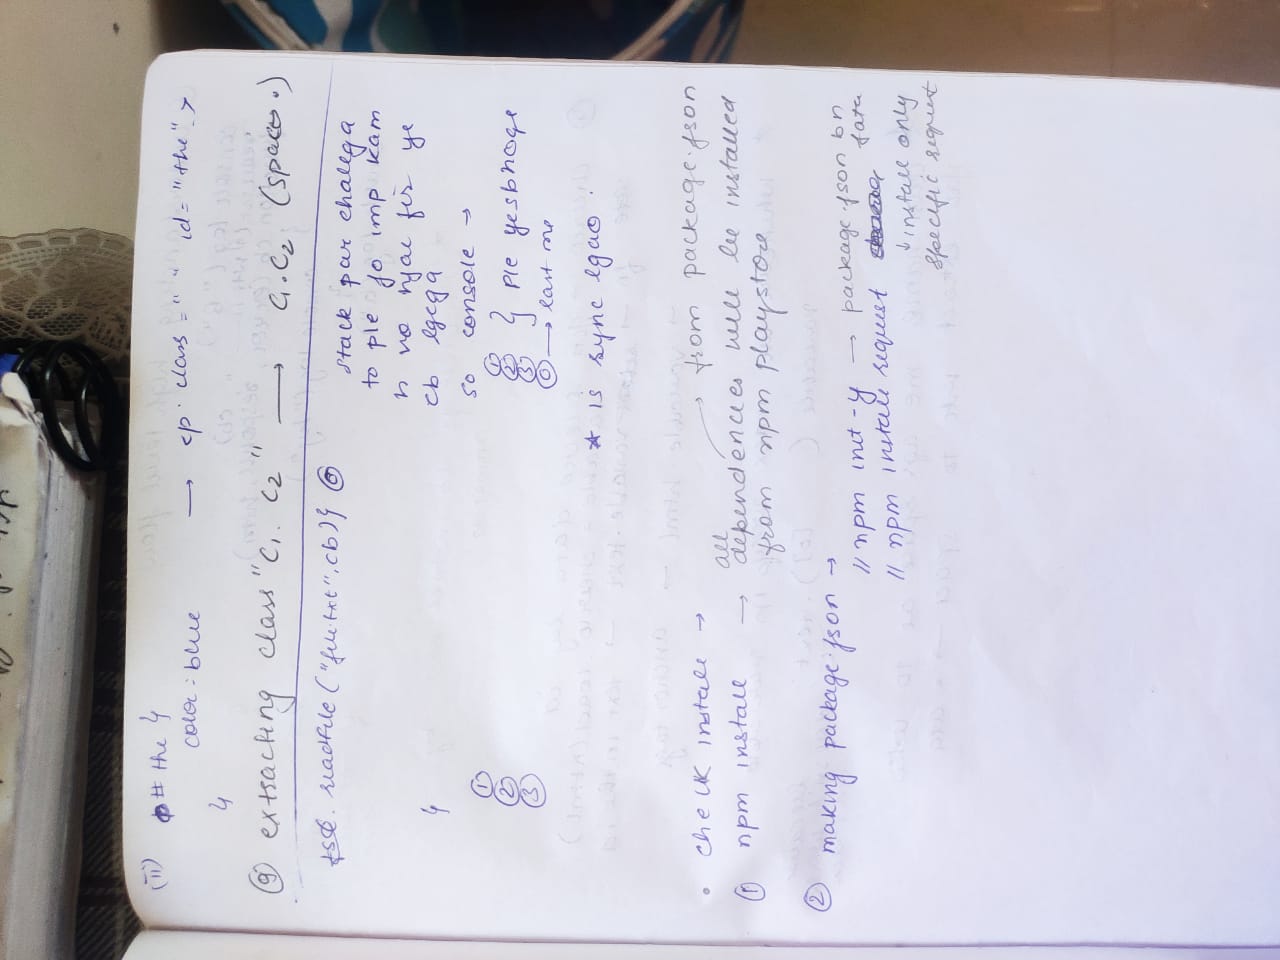 (ii) p# the {
color: blue → <p. class = " " id = "the">
}
⑨ extracting class "C1. C2" → C1.C2 (space .)
readfile ("file.txt", cb) { ⓪
stack par chalega
to ple jo imp kam
h vo hjae fir ye
}
cb lgega
so console →
①
②
③
①
②
③ } ple yesbhoge
⓪ → last me
* is sync lgao .
• install →
→ from package.json
① npm install → all dependencies will be installed
from npm playstore
② making package.json →
// npm init -y → package.json bn jata
// npm install request
↓ install only
specific request